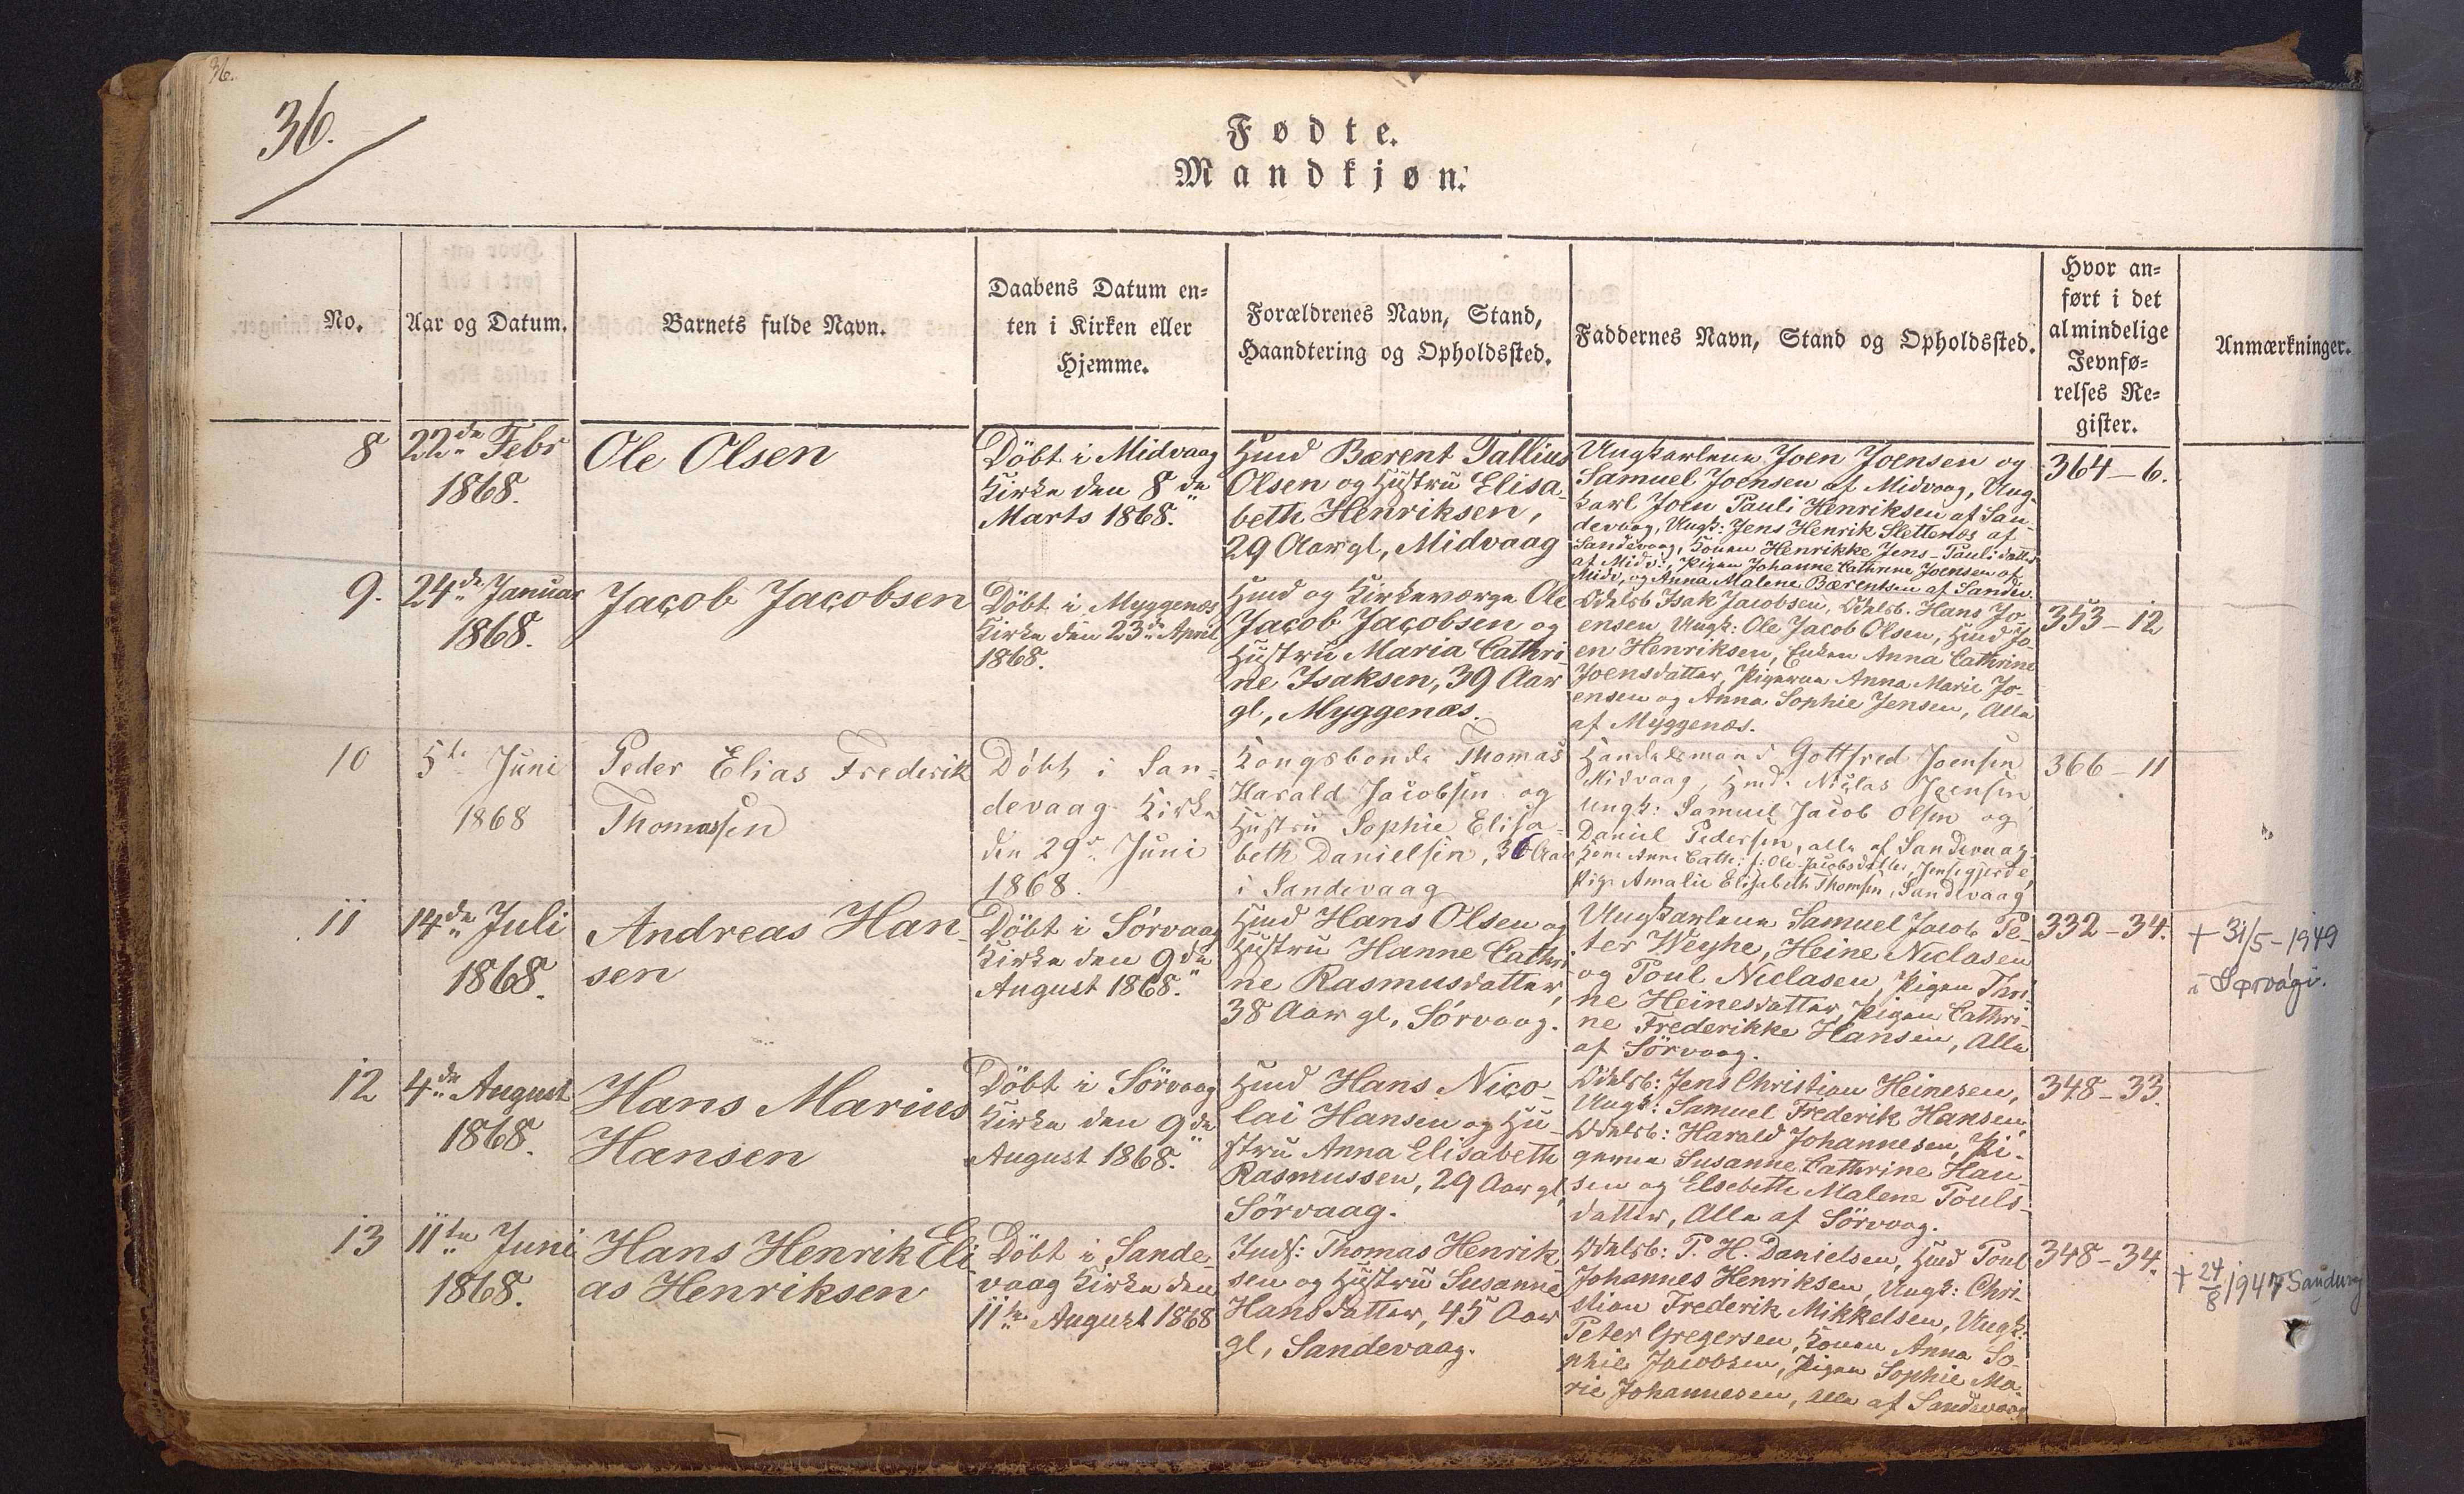 36.
36.
Fødte.
Mandkjøn.
No.
Aar og Datum.
Barnets fulde Navn.
Daabens Datum en-
ten i Kirken eller
Hjemme.
Forældrenes Navn, Stand,
Haandtering og Opholdssted.
Faddernes Navn, Stand og Opholdssted.
Hvor an-
ført i det
almindelige
Jevnfø-
relses Re-
gister.
Anmærkninger.
8
22de Febr
1868.
Ole Olsen
Döbt i Midvaag
Kirke den 8de
Marts 1868.
Hmd Bærent Tallius
Olsen og Hustru Elisa-
beth Henriksen,
29 Aar gl, Midvaag
Ungkarlene Joen Joensen og
Samuel Joensen af Midvaag, Ung-
karl Joen Pauli Henriksen af San-
devaag, Ungk: Jens Henrik Slettenes af
Sandevaag, Konen Henrikke Jens-Paulidatter
af Midv:, Pigen Johanne Cathrine Joensen af
Midv, og Anna Malene Bærentsen af Sandev.
364-6.
9.
24de Januar
1868.
Jacob Jacobsen
Döbt i Myggenæs
Kirke den 23de April
1868.
Hmd og Kirkeværge Ole
Jacob Jacobsen og
Hustru Maria Cathri-
ne Isaksen, 39 Aar
gl, Myggenæs.
Odelsb Isak Jacobsen, Odelsb. Hans Jo-
ensen Ungk: Ole Jacob Olsen, Hmd Jo-
en Henriksen, Enken Anna Cathrine
Joensdatter, Pigerne Anna Marie Jo-
ensen og Anna Sophie Jensen, Alle
af Myggenæs.
353-12
10
5te Juni
1868
Peder Elias Frederik
Thomassen
Döbt i San-
devaag Kirke
den 29de Juni
1868.
Kongsbonde Thomas
Harald Jacobsen og
Hustru Sophie Elisa-
beth Danielsen, 36 Aar
i Sandevaag
Handelsmand Gottfred Joensen
Midvaag, Hmd: Niclas Joensen
Ungk: Samuel Jacob Olsen og
Daniel Pedersen, alle af Sandevaag,
Kone Anne Cath: f: Ole-Jacobsdatter, Jensegjerde,
Pige Amalie Elisabeth Thomsen, Sandevaag
366-11
11
14de Juli
1868.
Andreas Han-
sen
Döbt i Sörvaag
Kirke den 9de
August 1868.
Hmd Hans Olsen og
Hustru Hanne Cathri-
ne Rasmusdatter,
38 Aar gl, Sörvaag.
Ungkarlene Samuel Jacob Pe-
ter Weyhe, Heine Niclasen
og Poul Niclasen, Pigen Thri-
ne Heinesdatter, Pigen Cathri-
ne Frederikke Hansen, Alle
af Sörvaag.
332-34.
+ 31/5-1949
i Sørvági.
12
4de August
1868.
Hans Marius
Hansen
Döbt i Sörvaag
Kirke den 9de
August 1868.
Hmd Hans Nico-
lai Hansen og Hu-
stru Anna Elisabeth
Rasmussen, 29 Aar gl,
Sörvaag.
Odelsb: Jens Christian Heinesen,
Ungk: Samuel Frederik Hansen,
Odelsb: Harald Johannesen, Pi-
gerne Susanne Cathrine Han-
sen og Elsebeth Malene Pouls-
datter, Alle af Sörvaag.
348-33.
13
11te Juni
1868.
Hans Henrik Eli
as Henriksen
Döbt i Sande-
vaag Kirke den
11te August 1868
Inds: Thomas Henrik-
sen og Hustru Susanne
Hansdatter, 45 Aar
gl, Sandevaag.
Odelsb: P. H. Danielsen, Hmd Poul
Johannes Henriksen, Ungk: Chri-
stian Frederik Mikkelsen, Ungk:
Peter Gregersen, Konen Anna So-
phie Jacobsen, Pigen Sophie Ma-
rie Johannesen, alle af Sandevaag
348-34.
+ 24/8 1947 Sandavág